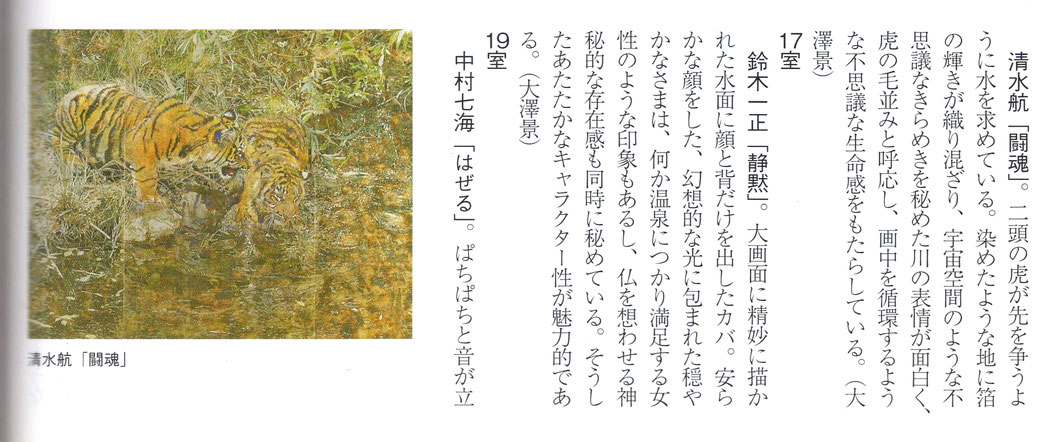 清水航「闘魂」。二頭の虎が先を争うよ
うに水を求めている。染めたような地に箔
の輝きが織り混ざり、宇宙空間のような不
思議なきらめきを秘めた川の表情が面白く、
虎の毛並みと呼応し、画中を循環するよう
な不思議な生命感をもたらしている。（大
澤景）
17室
鈴木一正「静黙」。大画面に精妙に描か
れた水面に顔と背だけを出したカバ。安ら
かな顔をした、幻想的な光に包まれた穏や
かなさまは、何か温泉につかり満足する女
性のような印象もあるし、仏を想わせる神
秘的な存在感も同時に秘めている。そうし
たあたたかなキャラクター性が魅力的であ
る。（大澤景）
19室
中村七海「はぜる」。ぱちぱちと音が立
清水航「闘魂」